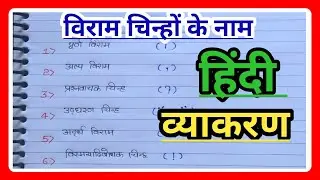 विराम चिन्हों के नाम
1) पूर्ण विराम (।)
2) अल्प विराम (,)
3) प्रश्नवाचक चिन्ह (?)
4) उद्धरण चिन्ह
5) आदर्श विराम
6) विस्मयादिबोधक चिन्ह (!)
हिंदी
व्याकरण